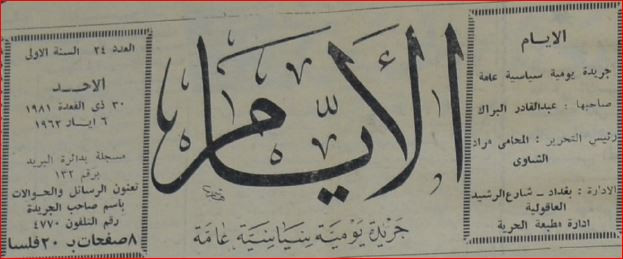 الايام
جريدة يومية سياسية عامة
صاحبها : عبدالقادر البراك
رئيس التحرير : المحامى مراد
الشاوى
الادارة : بغداد - شارع الرشيد
العاقولية
ادارة مطبعة الحرية
الأيام
جريدة يومية سياسية عامة
العدد ٢٤ السنة الاولى
الاحد
٣٠ ذى القعدة ١٩٨١
٦ ايار ١٩٦٢
مسجلة بدائرة البريد
برقم ١٣٢
تعنون الرسائل والحوالات
باسم صاحب الجريدة
رقم التلفون ٤٧٧٠
٨ صفحات بـ ٢٠ فلسا